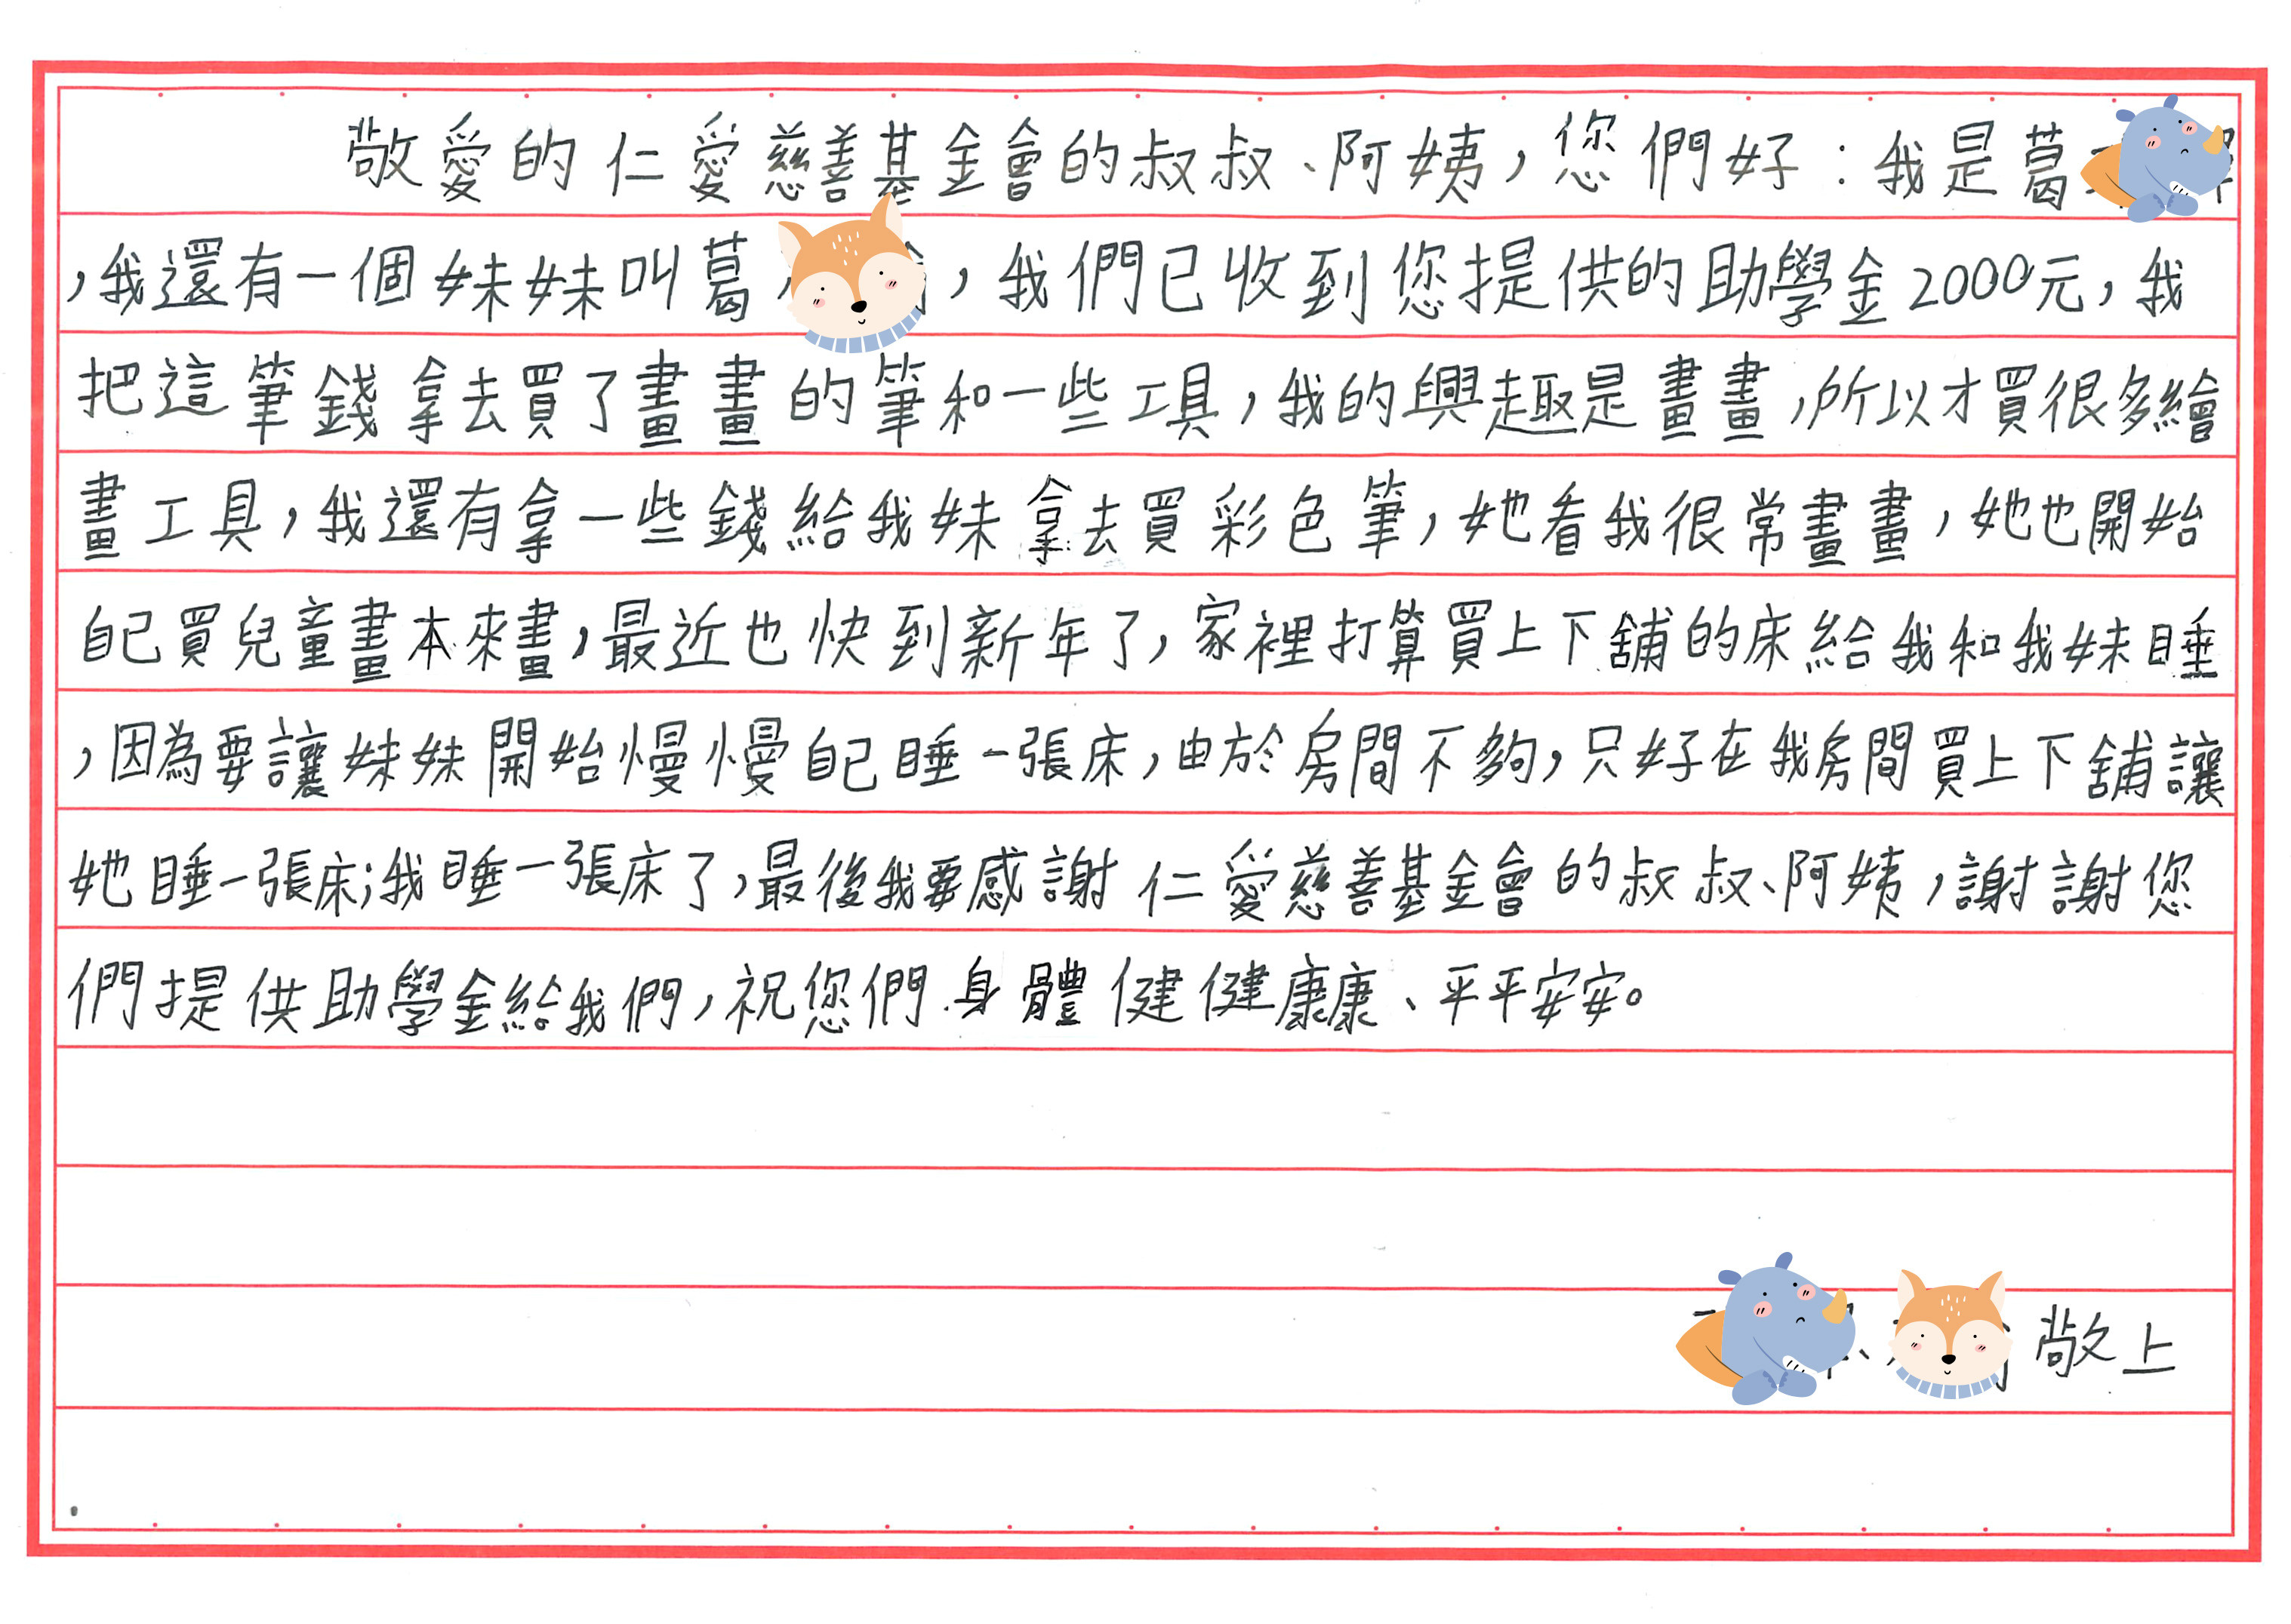 敬愛的仁愛慈善基金會的叔叔、阿姨，您們好：我是葛
，我還有一個妹妹叫葛，我們已收到您提供的助學金2000元，我
把這筆錢拿去買了畫畫的筆和一些工具，我的興趣是畫畫，所以才買很多繪
畫工具，我還有拿一些錢給我妹拿去買彩色筆，她看我很常畫畫，她也開始
自己買兒童畫本來畫，最近也快到新年了，家裡打算買上下舖的床給我和我妹睡
，因為要讓妹妹開始慢慢自己睡一張床，由於房間不夠，只好在我房間買上下舖讓
她睡一張床；我睡一張床了，最後我要感謝仁愛慈善基金會的叔叔、阿姨，謝謝您
們提供助學金給我們，祝您們身體健健康康、平平安安。
、敬上